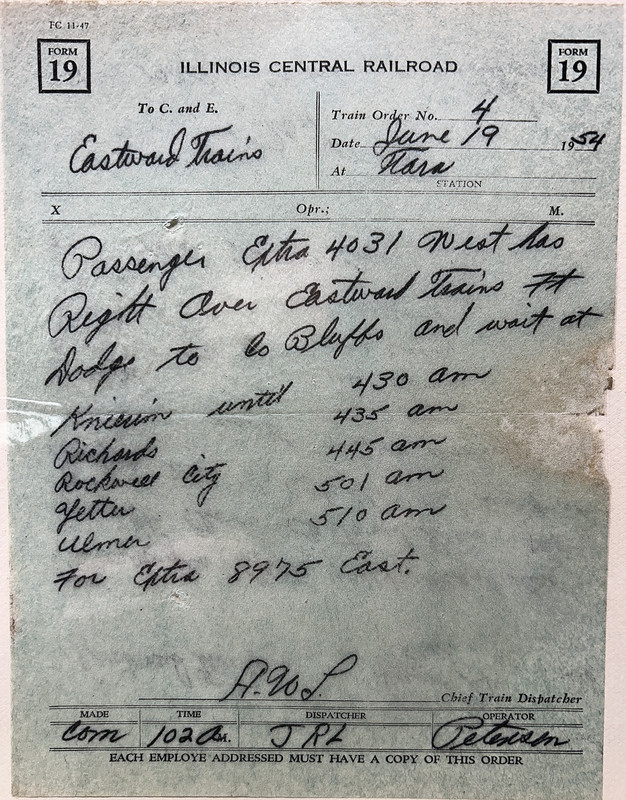 FC 11-47
FORM 19
FORM 19
ILLINOIS CENTRAL RAILROAD
To C. and E.
Eastward Trains
Train Order No. 4
Date June 19 1954
At Tara
STATION
X Opr.; M.
Passenger Extra 4031 West has
Right Over Eastward Trains Ft
Dodge to Co Bluffs and wait at
Knierim until 430 am
Richards 435 am
Rockwell City 445 am
Yetter 501 am
Ulmer 510 am
For Extra 8975 East.
A.W.L.
Chief Train Dispatcher
MADE TIME DISPATCHER OPERATOR
Com 102 A M. JRL Petersen
EACH EMPLOYE ADDRESSED MUST HAVE A COPY OF THIS ORDER